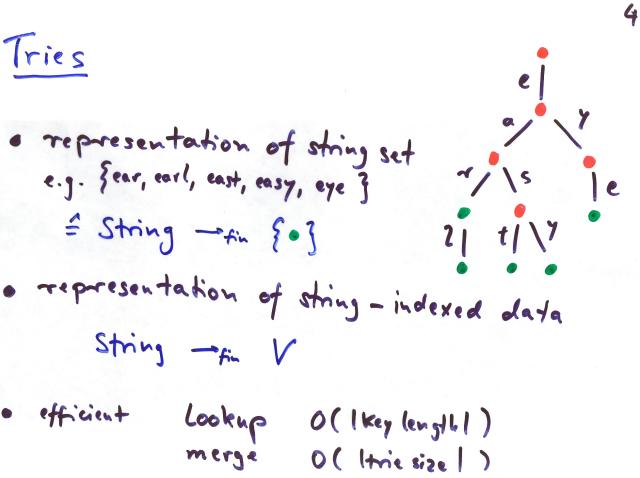 4
Tries
• representation of string set
e.g. {ear, earl, east, easy, eye}
≙ String →fin {•}
• representation of string-indexed data
String →fin V
• efficient Lookup O(|key length|)
merge O(|trie size|)
e
a y
r s e
l t y